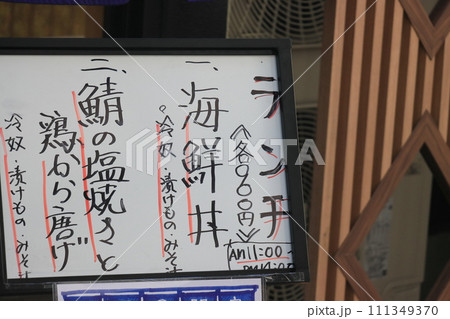 ランチ
≪各960円≫
AM11:00-
PM14:00
一、海鮮丼
◦冷奴・漬けもの・みそ汁
二、鯖の塩焼きと
鶏から唐げ
冷奴・漬けもの・みそ汁
pixta.jp - 111349370